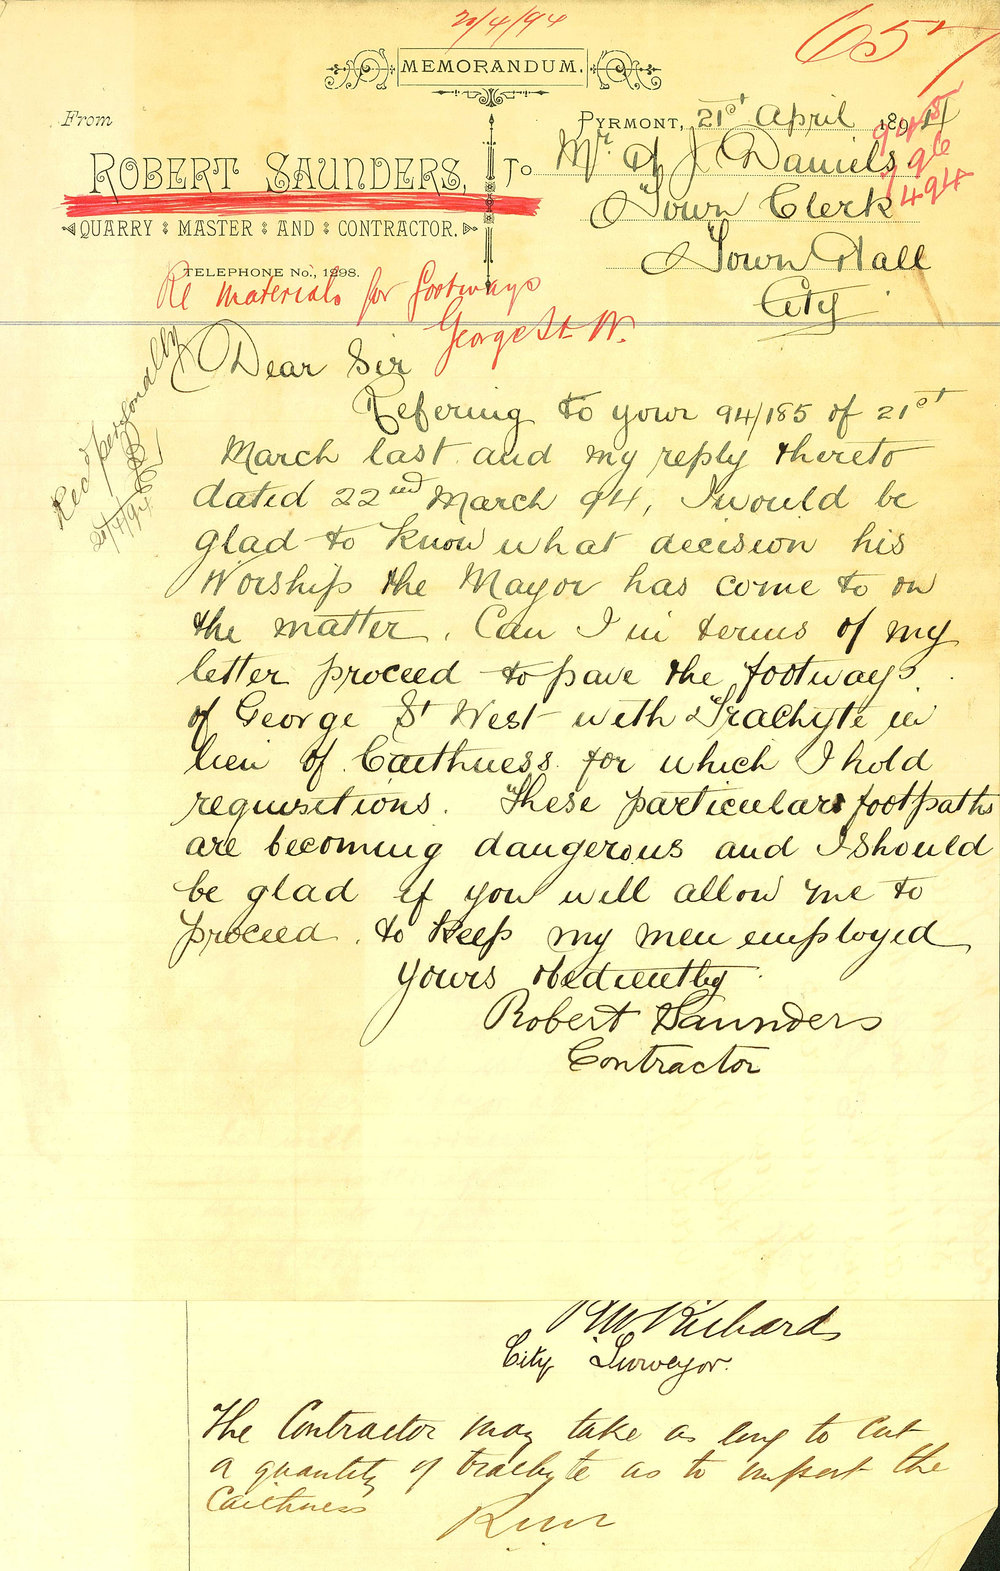 20/4/94
657
MEMORANDUM.
From
PYRMONT, 21st April 1894
945
796
494
ROBERT SAUNDERS,
To
Mr. J Daniels
Town Clerk
QUARRY MASTER AND CONTRACTOR.
Town Hall
City
TELEPHONE No., 1298.
Re materials for footways
George St W.
Recd personally
20/4/94
Dear Sir
Refering to your 94/185 of 21st
March last and my reply thereto
dated 22nd March 94, I would be
glad to know what decision his
Worship the Mayor has come to on
the matter. Can I in terms of my
letter proceed to pave the footways
of George St West with Trachyte in
lieu of Caithness for which I hold
requisitions. These particular footpaths
are becoming dangerous and I should
be glad if you will allow me to
proceed. to keep my men employed
yours obediently
Robert Saunders
Contractor
RW Richards
City Surveyor.
The Contractor may take as long to cut
a quantity of trachyte as to import the
Caithness